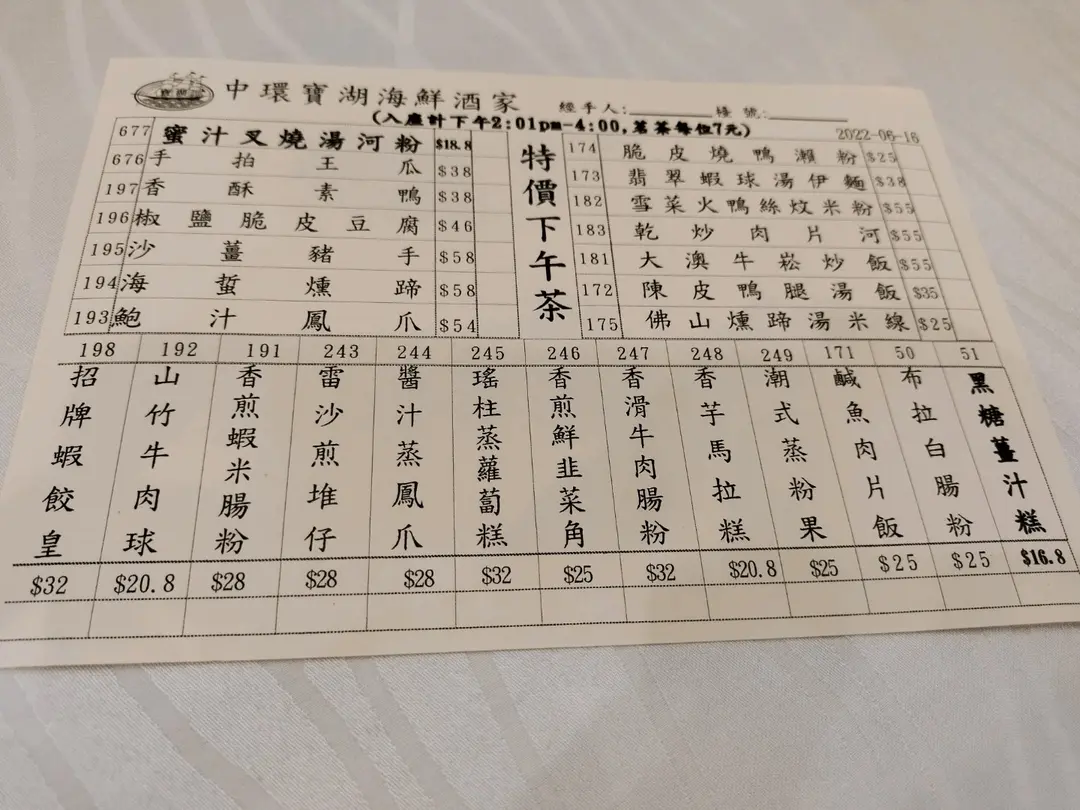 寶湖
中環寶湖海鮮酒家 經手人: 檯號:
(入座計下午2:01pm-4:00,茗茶每位7元)
2022-06-16
677 蜜汁叉燒湯河粉 $18.8
676 手拍王瓜 $38
197 香酥素鴨 $38
196 椒鹽脆皮豆腐 $46
195 沙薑豬手 $58
194 海蜇燻蹄 $58
193 鮑汁鳳爪 $54
特價下午茶
174 脆皮燒鴨瀨粉 $25
173 翡翠蝦球湯伊麵 $38
182 雪菜火鴨絲炆米粉 $55
183 乾炒肉片河 $55
181 大澳牛崧炒飯 $55
172 陳皮鴨腿湯飯 $35
175 佛山燻蹄湯米線 $25
198 招牌蝦餃皇 $32
192 山竹牛肉球 $20.8
191 香煎蝦米腸粉 $28
243 雷沙煎堆仔 $28
244 醬汁蒸鳳爪 $28
245 瑤柱蒸蘿蔔糕 $32
246 香煎鮮韭菜角 $25
247 香滑牛肉腸粉 $32
248 香芋馬拉糕 $20.8
249 潮式蒸粉果 $25
171 鹹魚肉片飯 $25
50 布拉白腸粉 $25
51 黑糖薑汁糕 $16.8